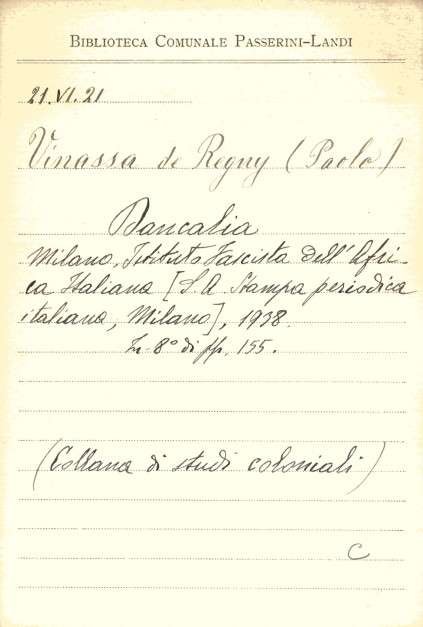 BIBLIOTECA COMUNALE PASSERINI-LANDI
21.VI.21
Vinassa de Regny (Paolo)
Dancalia
Milano, Istituto Fascista dell'Afri-
ca Italiana [S.A. Stampa periodica
italiana, Milano], 1938.
In-8° di pp. 155.
(Collana di studi coloniali)
C